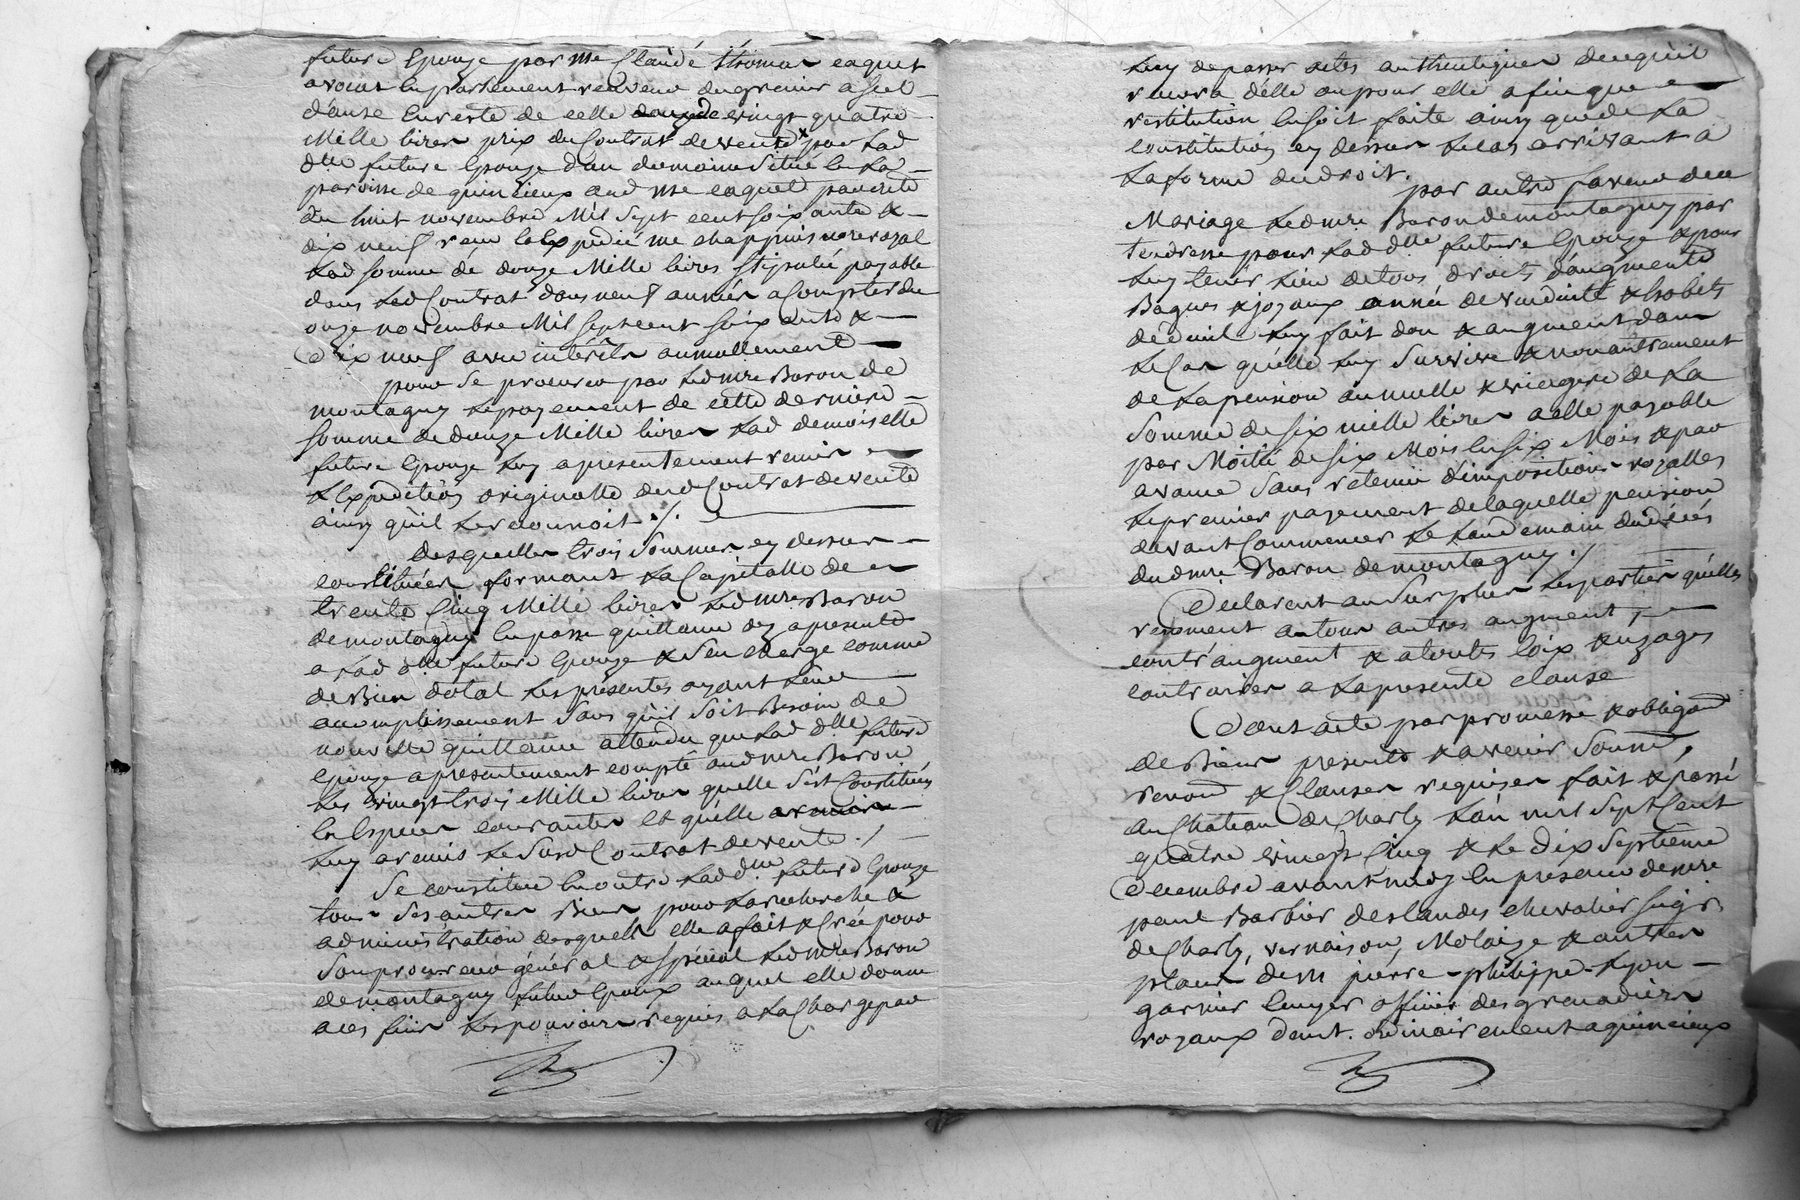 future Epouze par Me Claude thomas caquet
avocat en parlement receveur du grenier a sel
d'anse En reste de celle de vingt quatre
Mille livres prix du Contrat de vente x par Lad
dlle future Epouze d'un domaine situé En La
paroisse de quincieux aud Me caquet pardevt
du huit novembre Mil Sept cent soixante &
dix neuf reçu Et Expedié Me chappuis nore royal
Lad somme de douze Mille livres stipulée payable
dans Led Contrat dans neuf années a Compter du
onze novembre Mil Sept cent soixante &
Dix neuf avec intérêts annuellement
pour se procurer par Led mre Baron de
montagny Le payement de cette derniere
somme de douze Mille livres Lad demoiselle
future Epouze Luy a presentement remis
L'Expedition originalle dud Contrat de vente
ainsy qu'il Le reconnoit ./.
desquelles trois sommes en dessus
constituées formant La Capitalle de
trente Cinq Mille livres Led Mre Baron
de montagny En passe quittance dez apresent
a Lad dlle future Epouze & s'en charge comme
de Bien dotal Les présentes ayant Leur
accomplissement sans qu'il soit Besoin de
nouvelle quittance attendu que Lad dlle future
Epouze a presentement compté aud mre Baron
Les vingt trois Mille livres quelle s'est Constituées
En Especes courantes Et qu'elle
Luy a remis Le susd Contrat de vente ./.
Se constitue En outre Lad dlle future Epouze
tous ses autres Biens pour La recherche &
administration desquels elle a fait & Crée pour
son procureur général & spécial Led mre Baron
de montagny futur Epoux auquel elle donne
a ces fins Les pouvoirs requis a La Charge par
Luy de passer actes authentiques de ce qu'il
recevra d'elle ou pour elle afin que
restitution En soit faite ainsy que de La
constitution en dessus Le cas arrivant a
La forme du droit.
par autre faveur de ce
Mariage Led mre Baron de montagny par
tendresse pour Lad dlle future Epouze & pour
Luy tenir Lieu de tous droits d'augment
Bagues & joyaux année de viduité & habits
de deuil Luy fait don & augment dans
Le Cas qu'elle Luy survive & non autrement
de La pension annuelle & viagere de La
somme de six mille livres a elle payable
par Moitié de six Mois En six Mois & par
avance sans retenue d'impositions royalles
Le premier payement de laquelle pension
devant Commencer Le Lendemain du décès
dud mre Baron de montagny ./
Declarent au surplus Les parties qu'elles
renoncent a tous autres augment,
contr'augment & a toutes loix & uzages
contraires a La presente clause
Dont acte par promesse & obligaon
de Biens presents & avenir soumon,
renonon & Clauses requises fait & passé
au Château de Charly L'an mil Sept Cent
quatre vingt Cinq & Le Dix Septieme
Decembre avant midy En presence de mre
paul Barbier deslandes chevalier seigr
de Charly, vernaison, Molaize & autres
places de m pierre-philippe-Lyon
garnier Ecuyer officier des grenadiers
royaux demt. ordinairement a quincieux